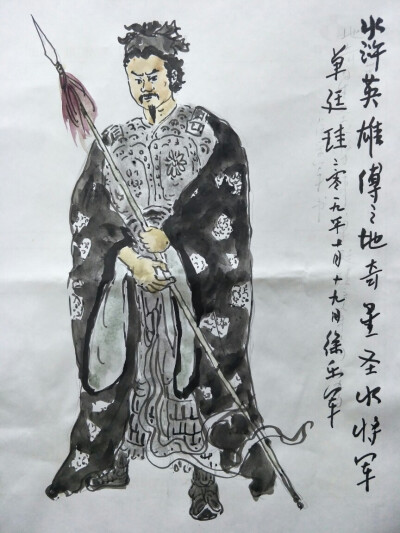 水浒英雄傅之地奇星圣水将军
单廷珪二零一九年十月十九日徐玉军